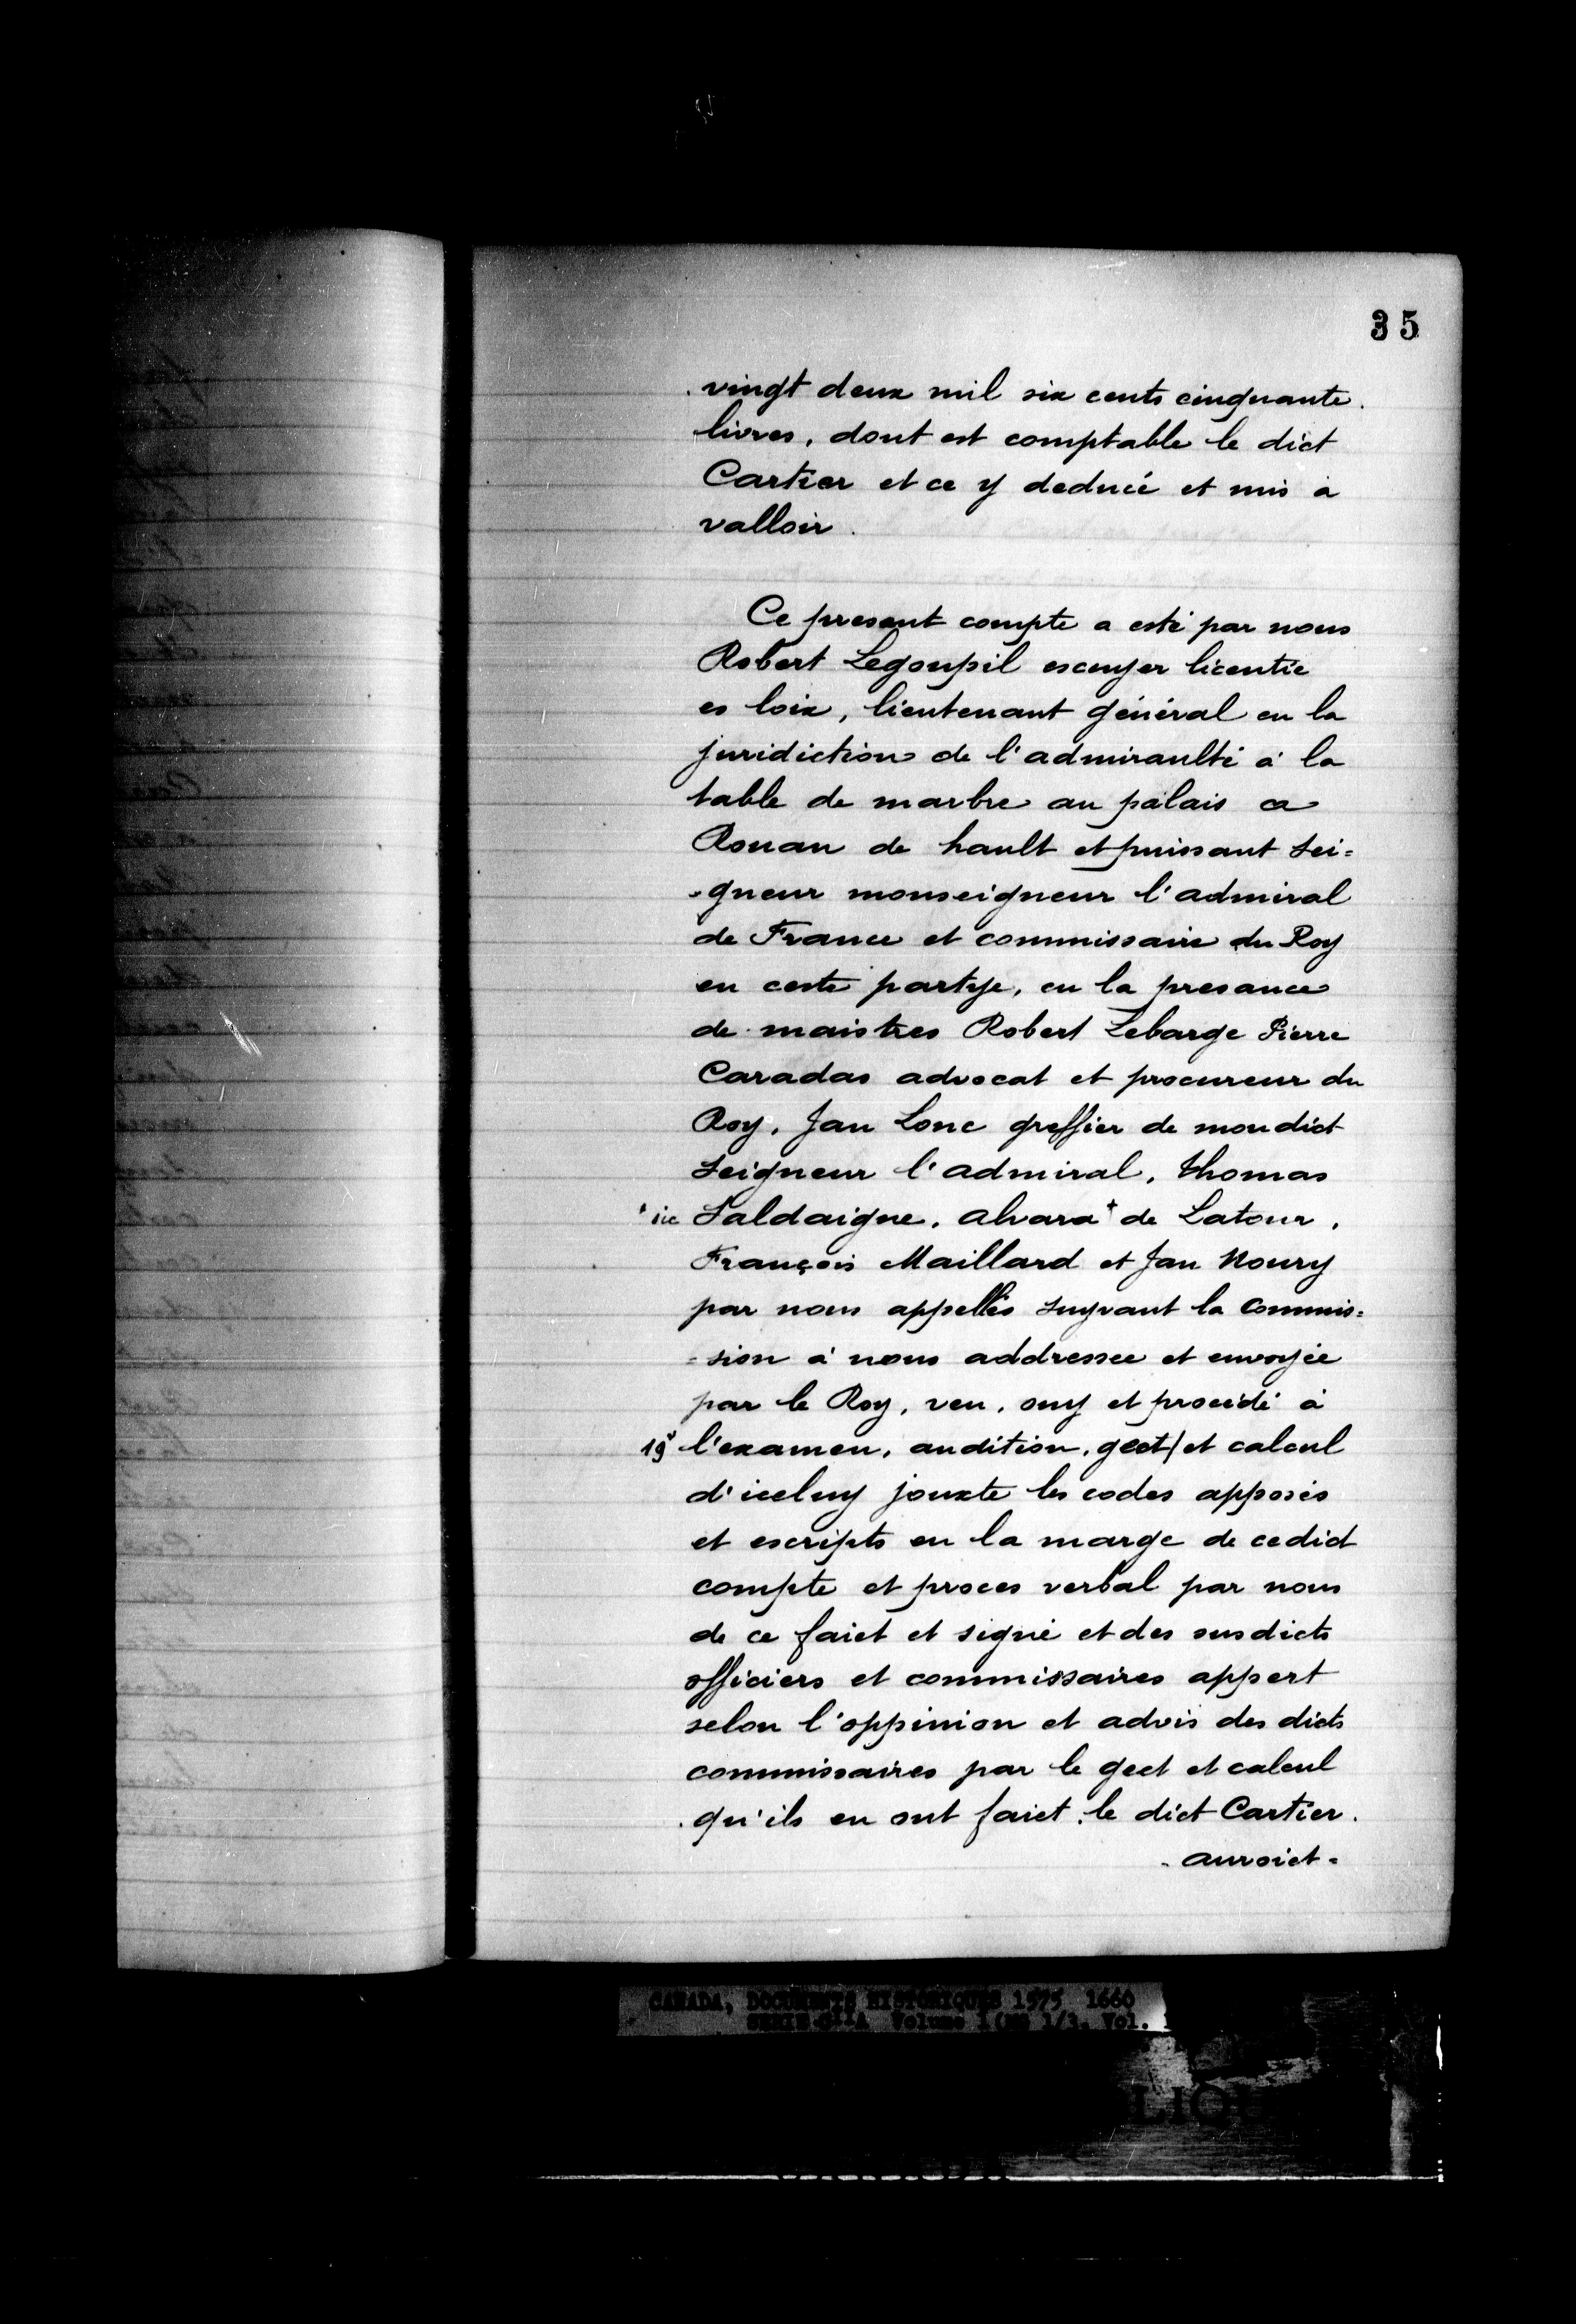 35
vingt deux mil six cents cinquante
livres, dont est comptable le dict
Cartier et ce y deducé et mis a
valloir.
Ce present compte a esté par nous
Robert Legoupil escuyer licentie
es loix, lieutenant général en la
juridiction de l'admiraulté à la
table de marbre au palais a
Rouan de hault et puissant sei=
=gneur monseigneur l'admiral
de France et commissaire du Roy
en ceste partye, en la presance
de maistres Robert Lebarge Pierre
Caradas advocat et procureur du
Roy, Jan Lonc greffier de mondict
seigneur l'admiral, Thomas
+ sic Saldaigne, alvara + de Latour,
François Maillard et Jan Noury
par nous appellés suyvant la commis=
=sion à nous addressee et envoyée
par le Roy, veu, ouy et procédé à
19v l'examen, audition, gect / et calcul
d'iceluy jouxte les codes apposés
et escripts en la marge de cedict
compte et proces verbal par nous
de ce faict et signé et des susdicts
officiers et commissaires appert
selon l'oppinion et advis des dicts
commissaires par le gect et calcul
qu'ils en ont faict. le dict Cartier.
- auroict -
CANADA, DOCUMENTS HISTORIQUES 1575 1660
SERIE C11A Volume 1 ( 1/3, Vol.
LIQU